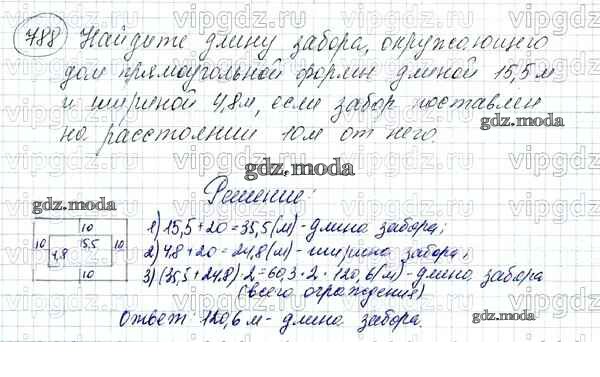 788 Найдите длину забора, окружающего
дом прямоугольной формы длиной 15,5 м
и шириной 4,8м, если забор поставлен
на расстоянии 10м от него.
gdz.moda
gdz.moda
Решение:
gdz.moda
10
10 15,5 10
4,8
10
1) 15,5+20=35,5(м)-длина забора;
2) 4,8+20=24,8(м)-ширина забора;
3) (35,5+24,8)·2=60,3·2=120,6(м)-длина забора
(всего ограждения)
Ответ: 120,6 м-длина забора.
gdz.moda
vipgdz.ru